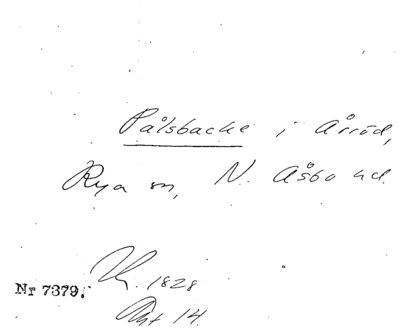 Pålsbacke i Årröd,
Rya sn, N. Åsbo hd.
Nr 7379. 1828
Akt 14.